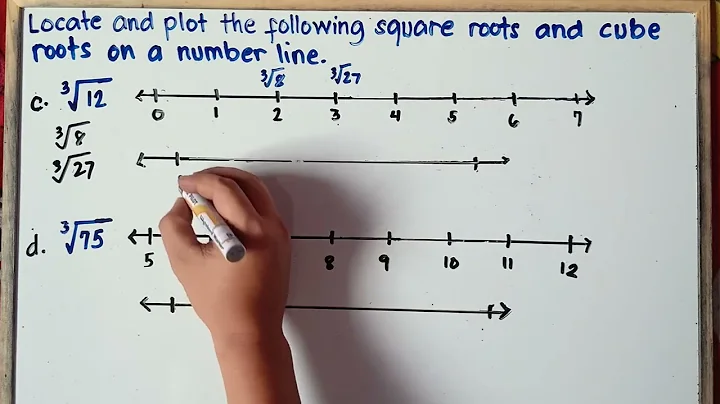 Locate and plot the following square roots and cube
roots on a number line.
∛8 ∛27
c. ∛12
0 1 2 3 4 5 6 7
∛8
∛27
d. ∛75
5 8 9 10 11 12